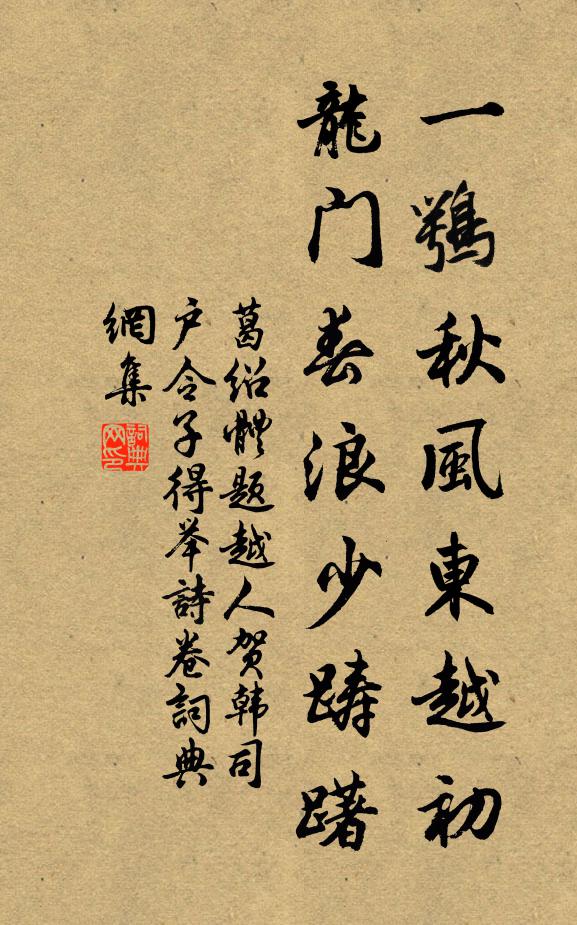 一鶚秋風東越初
龍门春浪少踌躇
葛绍體题越人贺韩司
户令子得举詩卷詞典
網集
詞典網印